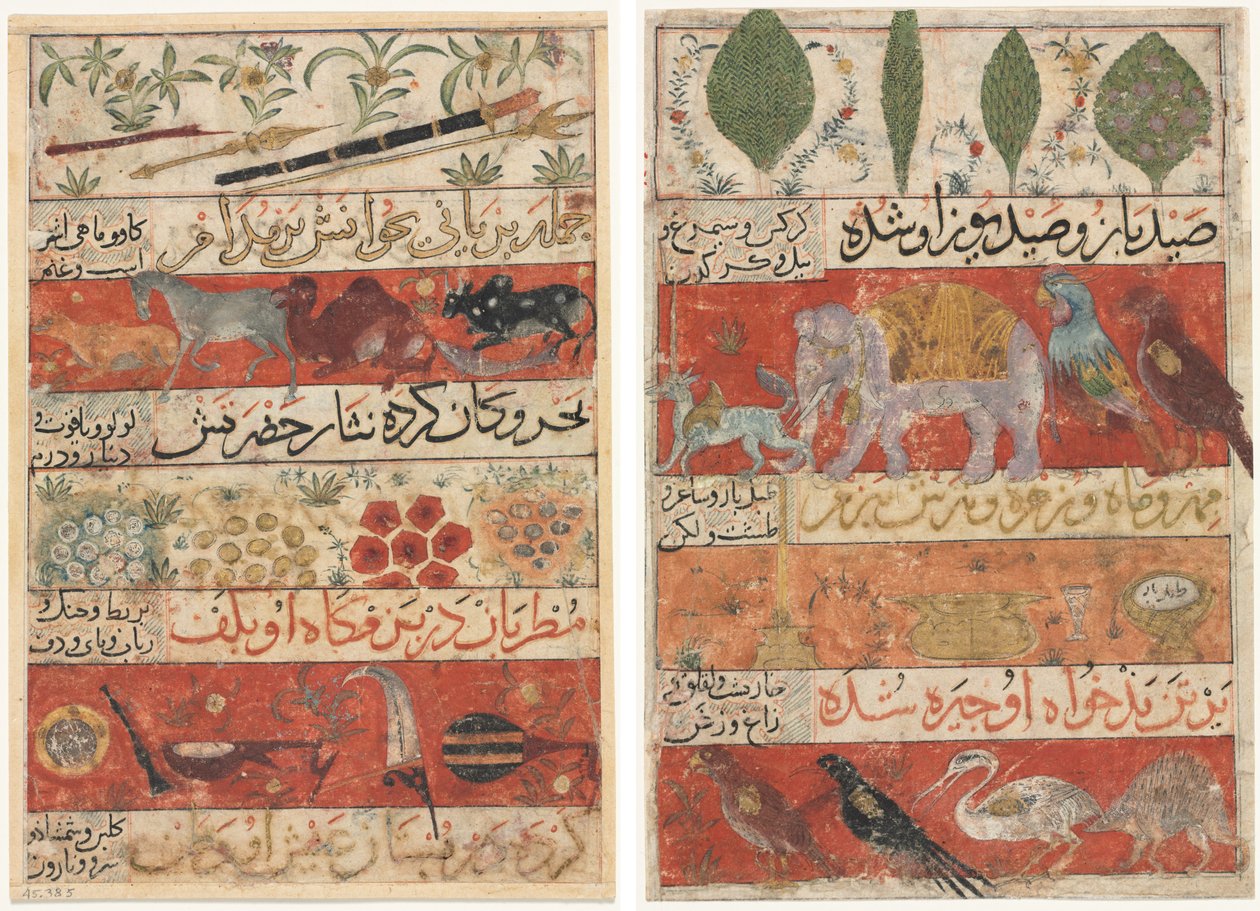 جمله بریانی بخوانش
کاو و ماهی اشتر
اسب و غنم
بحر و کان کرده نثار حضرتش
لولو و یاقوت و
دینار و درم
مطربان در بزمکاه او بکف
بربط و چنک و
رباب و نای و دف
کرده در بستان ز عیش او
کلبن و شمشاد و
سرو و نارون
45.385
صید باز و صید یوز او شده
کرکس و سیمرغ و
بیل و کرکدن
مهر و ماه و زهره و
طبل باز و ساغر و
طشت و لکن
طبل باز
بر تن بدخواه او چیره شده
خاربشت و لقلق و
زاغ و زغن